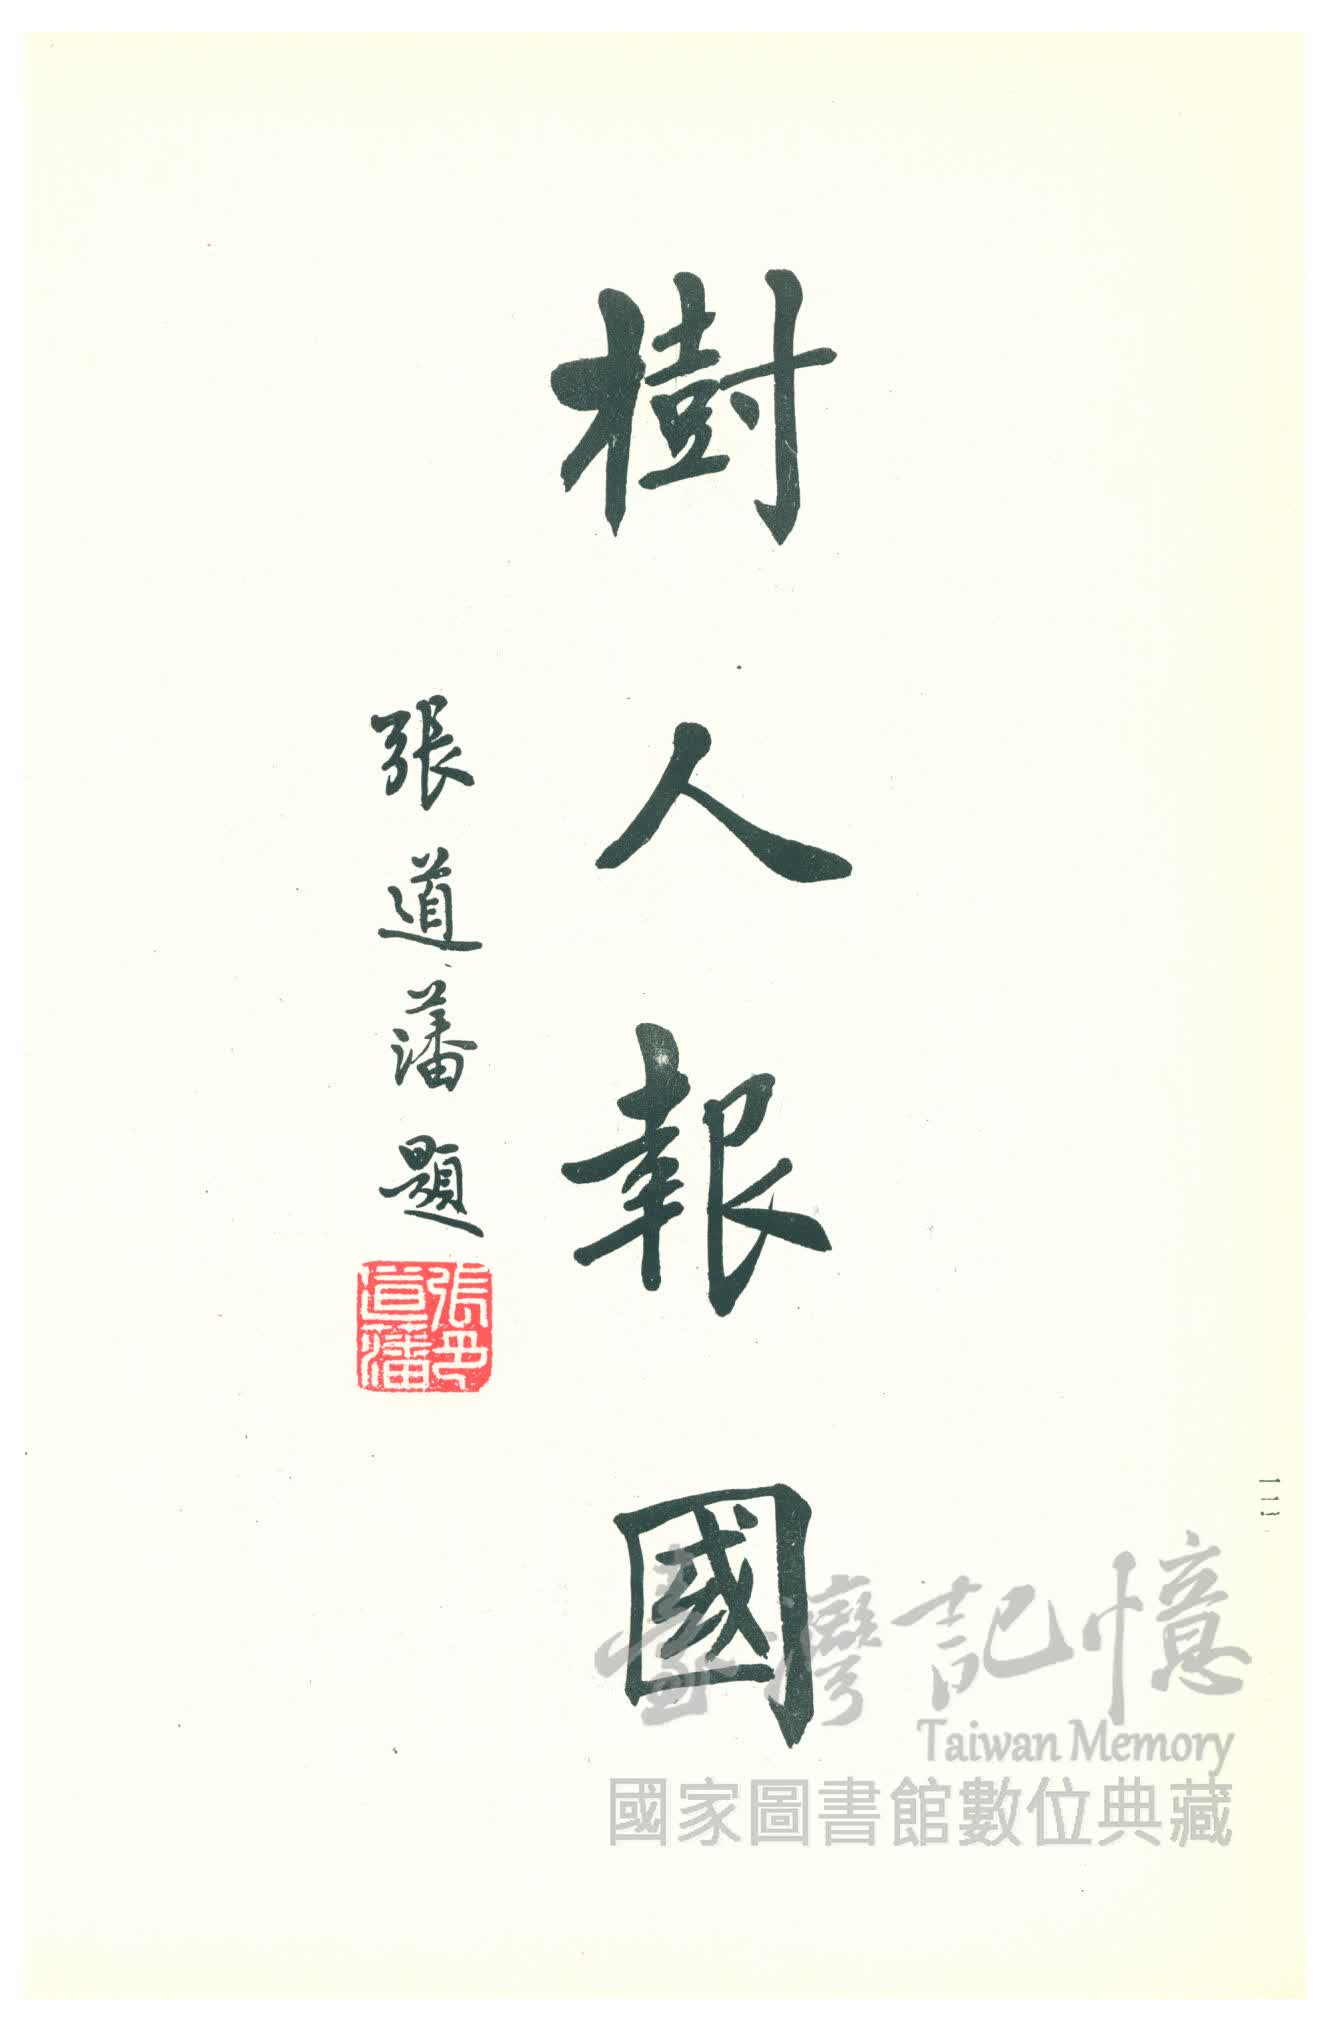 樹人報國
張道藩題
張道藩印
臺灣記憶
Taiwan Memory
國家圖書館數位典藏